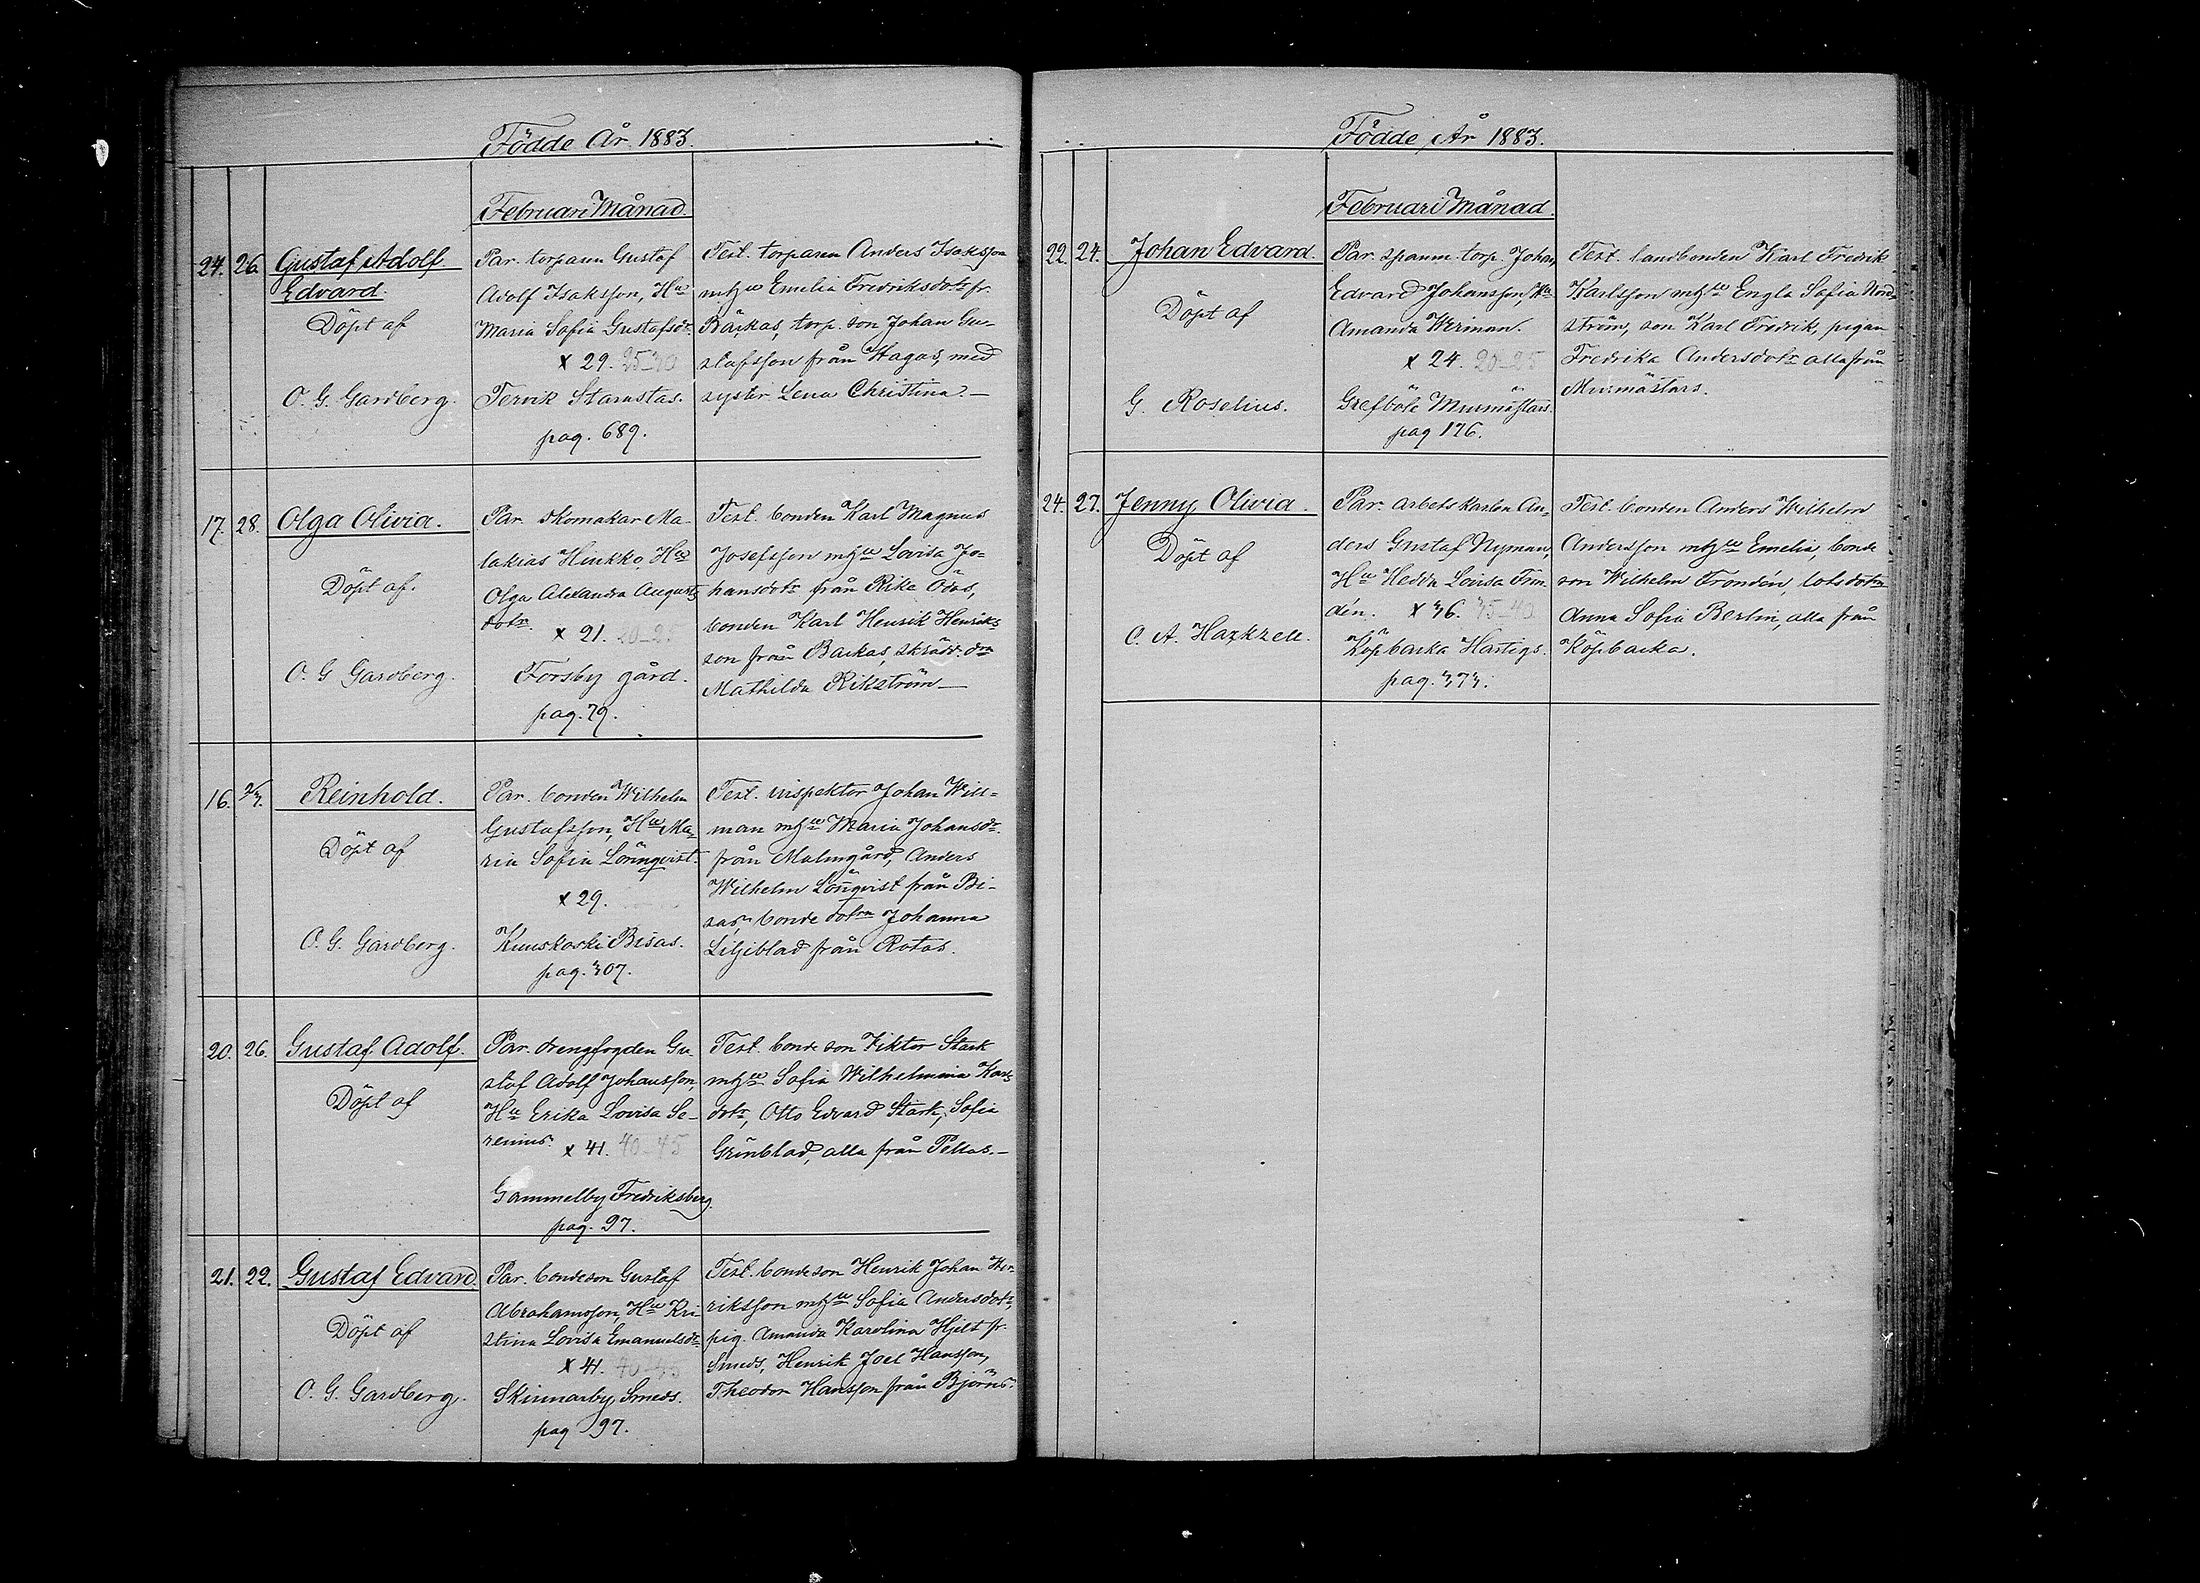 Födde År 1883.
Februari Månad.
24. 26. Gustaf Adolf
Edvard.
Döpt af
O. G. Gardberg.
Par. torparen Gustaf
Adolf Isaksson, Hu
Maria Sofia Gustafsdr.
x 29. 25-30
Tervik Starastas.
pag. 689.
Test. torparen Anders Isaksson
mhu Emelia Fredriksdotr fr.
Backas, torp. son Johan Gu-
stafsson från Hagas, med
syster Lena Christina.—
17. 28. Olga Olivia.
Döpt af.
O. G. Gardberg.
Par. skomakar Ma-
lakias Hinkko, Hu
Olga Alexandra Augusts
dotr.
x 21. 20-25
Forsby gård.
pag. 79.
Test. bonden Karl Magnus
Josefsson mhu Lovisa Jo-
hansdotr från Rika Ödas,
bonden Karl Henrik Henriks
son från Backas, skrädd. drn
Mathilda Rikström—
16. 2/3. Reinhold.
Döpt af
O. G. Gardberg.
Par. bonden Wilhelm
Gustafsson, Hu Ma-
ria Sofia Lönnqvist.
x 29.
Kuuskoski Bisas.
pag. 307.
Test. inspektor Johan Will-
man mhu Maria Johansdr.
från Malmgård, Anders
Wilhelm Lönqvist från Bi-
sas, bonde dotrn Johanna
Liljeblad från Rotas.
20. 26. Gustaf Adolf.
Döpt af
Par. drengfogden Gu-
staf Adolf Johansson,
Hu Erika Lovisa Se-
renius.
x 41. 40-45
Gammelby Fredriksberg.
pag. 97.
Test. bonde son Viktor Stark
mhu Sofia Wilhelmina Karls
dotr, Otto Edvard Stark, Sofia
Grönblad, alla från Pellas.—
21. 22. Gustaf Edvard.
Döpt af
O. G. Gardberg.
Par. bondeson Gustaf
Abrahamsson, Hu Kri-
stina Lovisa Emanuelsdr
x 41. 40-45
Skinnarby Smeds.
pag 97.
Test. bondeson Henrik Johan Hen-
riksson mhu Sofia Andersdotr,
pig. Amanda Karolina Hjelt fr.
Smeds, Henrik Joel Hansson,
Theodor Hansson från Björns.
Födde År 1883.
Februari Månad.
22. 24. Johan Edvard.
Döpt af
G. Roselius.
Par. spanm. torp. Johan
Edvard Johansson, Hu
Amanda Werman.
x 24. 20-25
Grefböle Murmästars.
pag 176.
Test. landbonden Karl Fredrik
Karlsson mhu Engla Sofia Nord-
ström, son Karl Fredrik, pigan
Fredrika Andersdotr alla från
Murmästars.
24. 27. Jenny Olivia.
Döpt af
C. A. Harkzell.
Par. arbetskarlen An-
ders Gustaf Nyman,
Hu Hedda Lovisa Fron-
dén. x 36. 35-40
Köpbacka Hartigs.
pag. 373.
Test. bonden Anders Wilhelm
Andersson mhu Emelia, bonde
son Wilhelm Frondén, lots dotrn
Anna Sofia Berlin, alla från
Köpbacka.